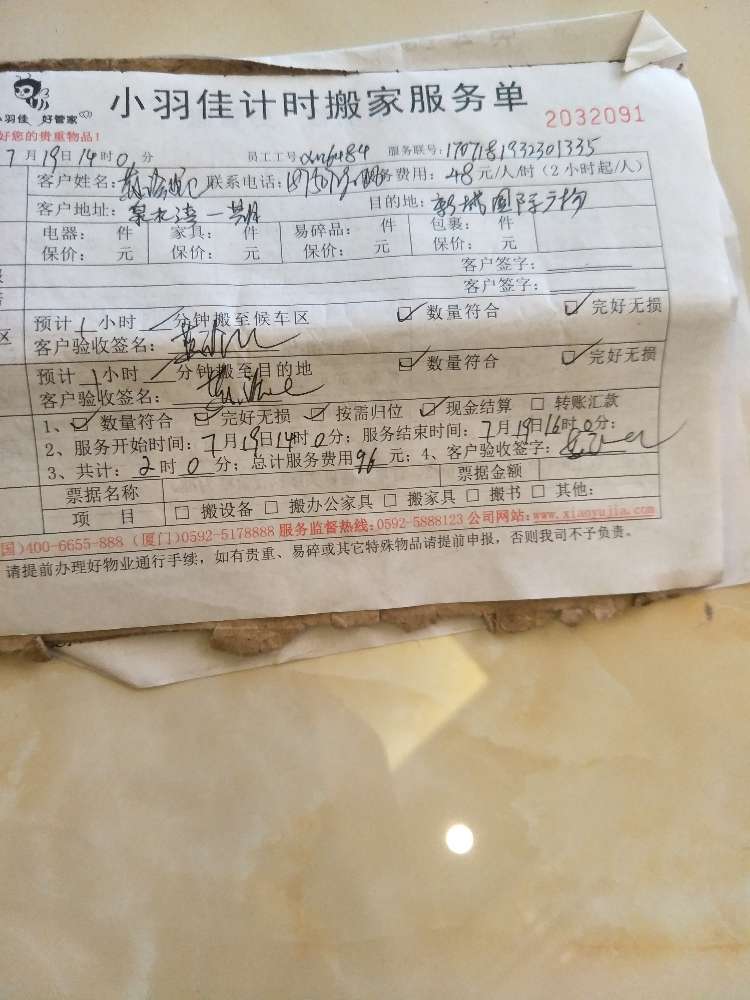 小羽佳计时搬家服务单
2032091
小羽佳 好管家
好您的贵重物品!
7月19日14时0分 员工工号 服务联号:1707181932301335
客户姓名: 联系电话: 费用:48元/人/时(2小时起/人)
客户地址:泉水湾一期 目的地:
电器: 件 家具: 件 易碎品: 件 包裹: 件
保价: 元 保价: 元 保价: 元 保价: 元
客户签字:
客户签字:
预计1小时 分钟搬至候车区 ☑数量符合 ☑完好无损
区 客户验收签名:
预计1小时 分钟搬至目的地 ☑数量符合 ☑完好无损
客户验收签名:
1、☑数量符合 ☑完好无损 ☑按需归位 ☑现金结算 □转账汇款
2、服务开始时间:7月19日14时0分; 服务结束时间:7月19日16时0分;
3、共计:2时0分; 总计服务费用96元; 4、客户验收签字:
票据名称 票据金额
项 目 □搬设备 □搬办公家具 □搬家具 □搬书 □其他:
国)400-6655-888 (厦门)0592-5178888 服务监督热线:0592-5888123 公司网站:www.xiaoyujia.com
请提前办理好物业通行手续,如有贵重、易碎或其它特殊物品请提前申报,否则我司不予负责。